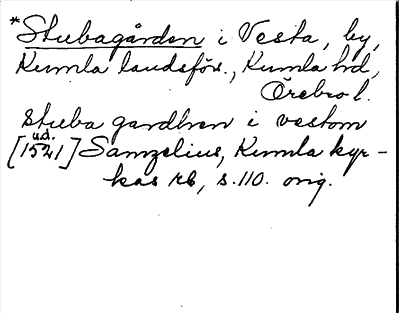 *Stubagården i Vesta, by,
Kumla landsförs., Kumla hd,
Örebro l.
stuba gardhen i vestom
u.d.
[1521] Samzelius, Kumla kyr-
kas rb, s. 110. orig.